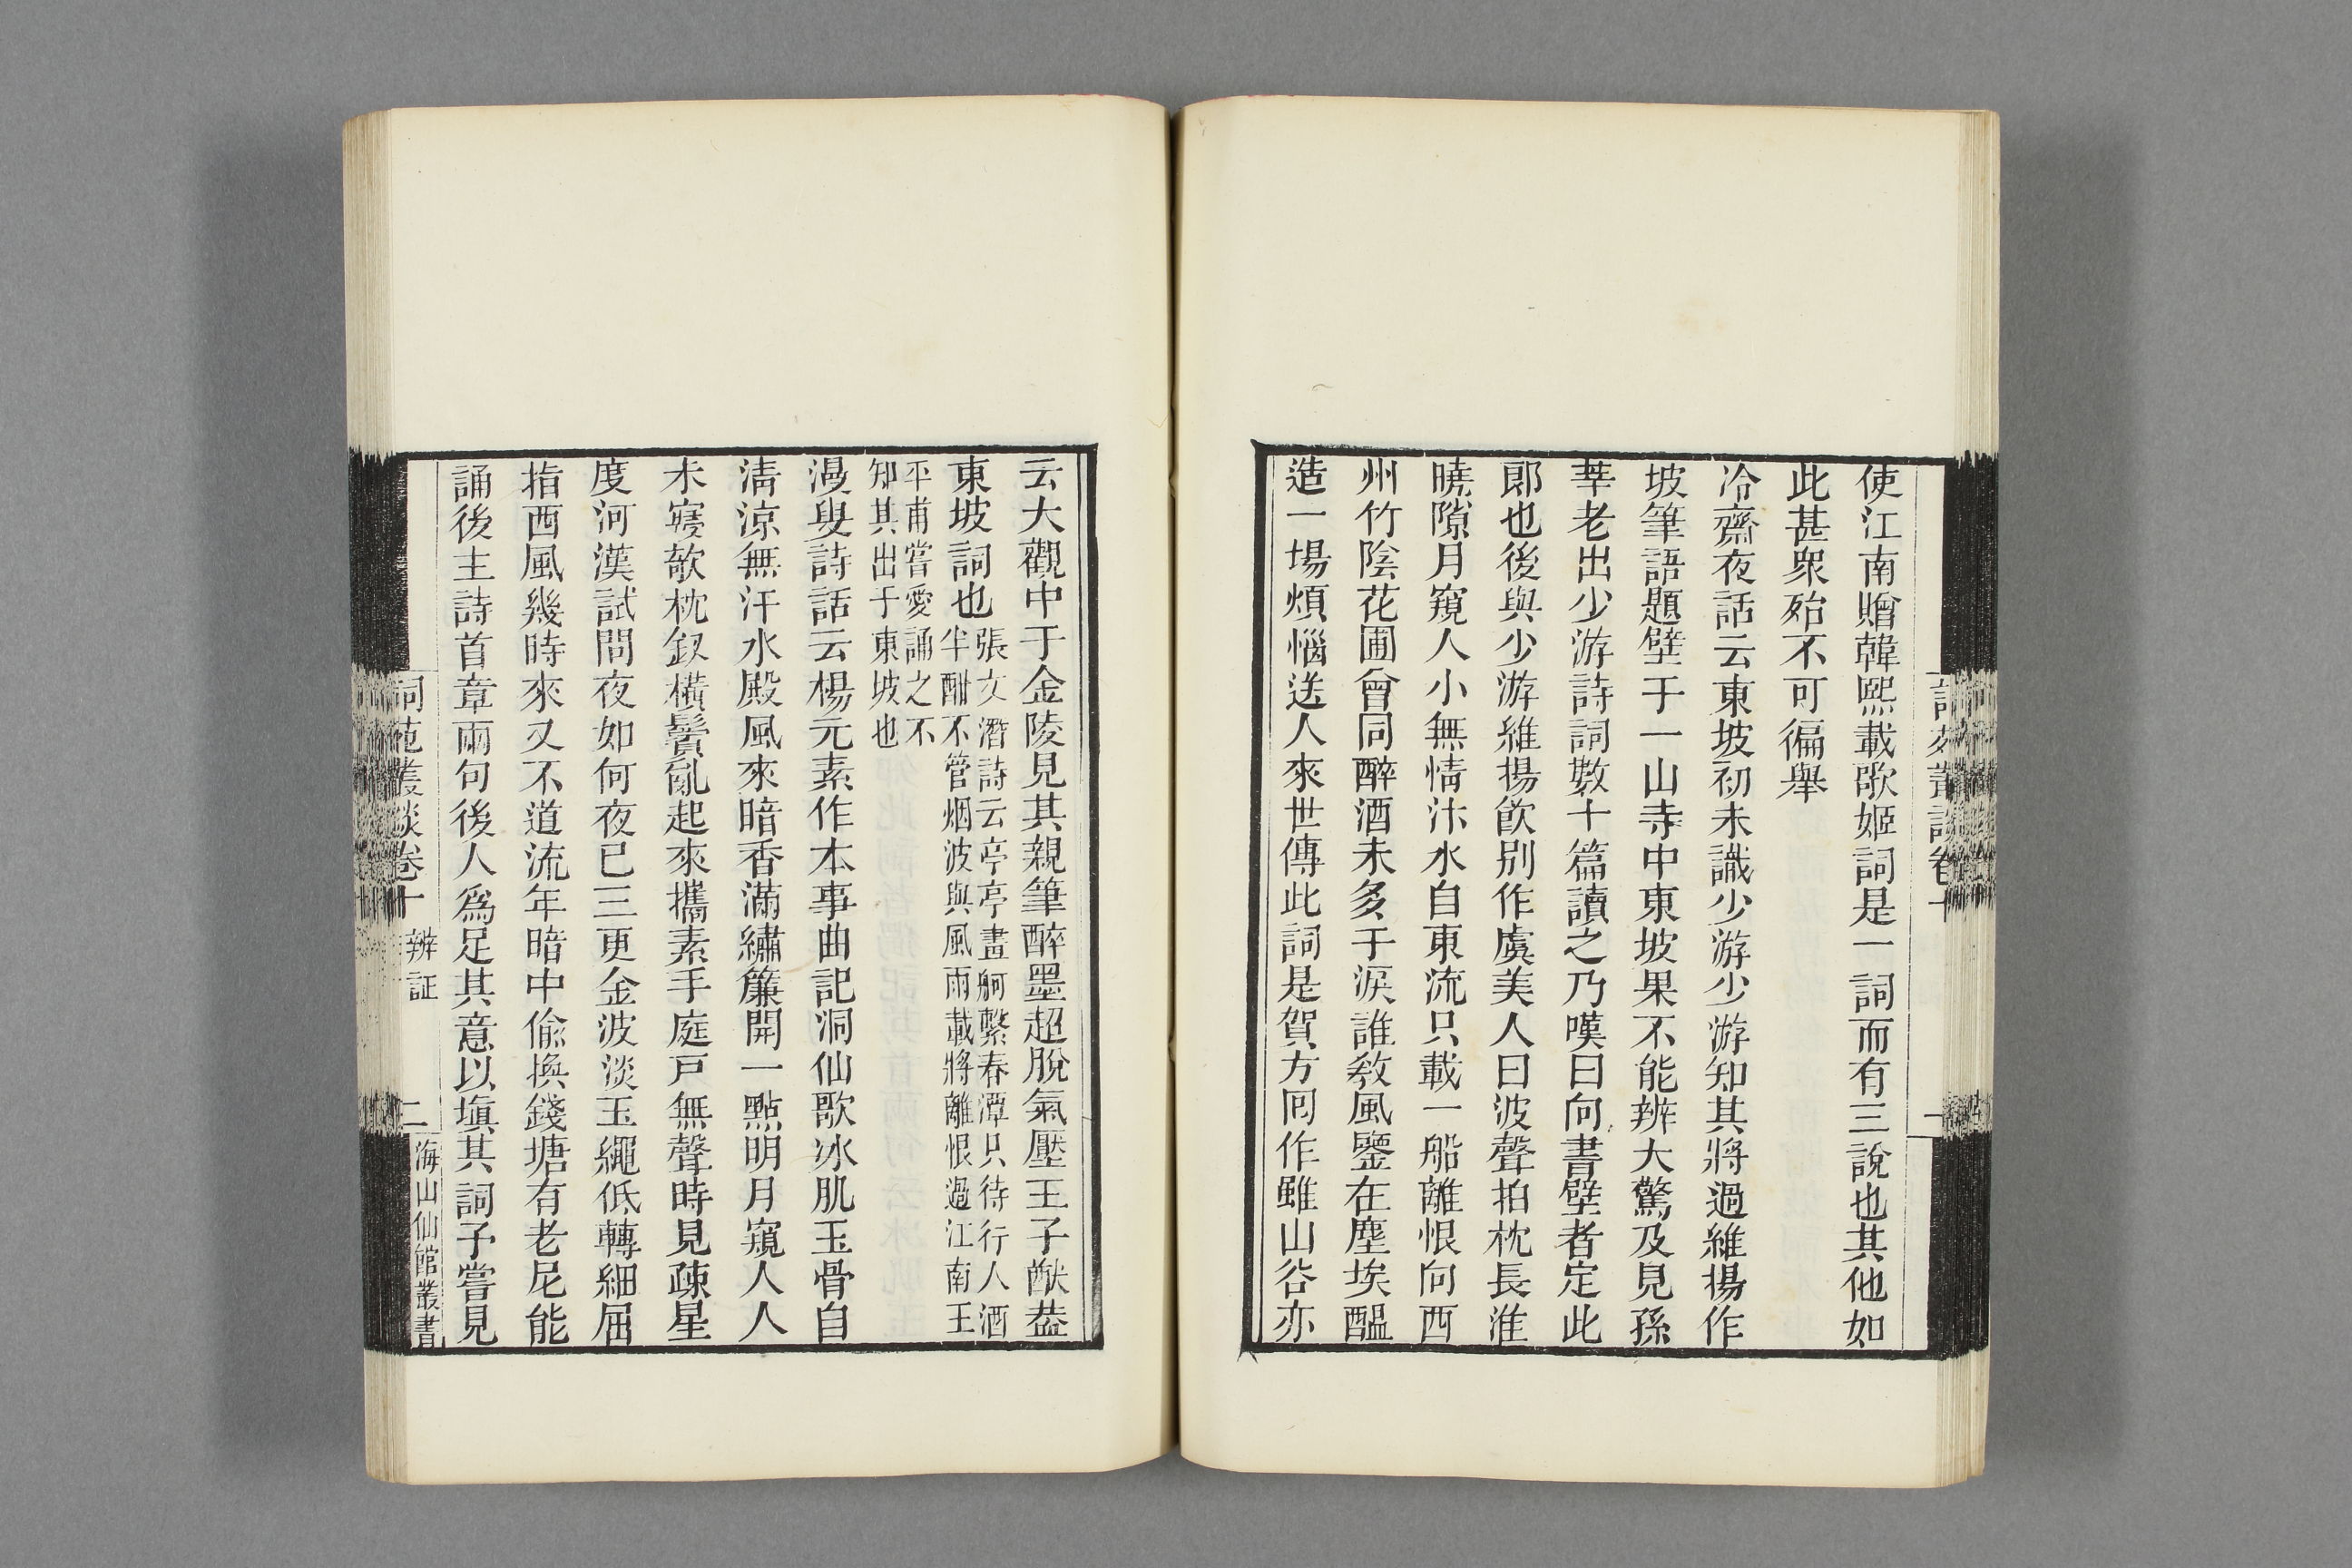 詞苑叢談卷十
一
使江南贈韓熙載歌姬詞是一詞而有三說也其他如
此甚衆殆不可徧舉
冷齋夜話云東坡初未識少游少游知其將過維揚作
坡筆語題壁于一山寺中東坡果不能辨大驚及見孫
莘老出少游詩詞數十篇讀之乃嘆曰向書壁者定此
郞也後與少游維揚飮别作虞美人曰波聲拍枕長淮
曉隙月窺人小無情汴水自東流只載一船離恨向西
州竹陰花圃曾同醉酒未多于淚誰敎風鑒在塵埃醞
造一場煩惱送人來世傳此詞是賀方囘作雖山谷亦
云大觀中于金陵見其親筆醉墨超脫氣壓王子猷葢
東坡詞也張文潛詩云亭亭畫舸繫春潭只待行人酒
半酣不管烟波與風雨載將離恨過江南王
平甫嘗愛誦之不
知其出于東坡也
漫叟詩話云楊元素作本事曲記洞仙歌冰肌玉骨自
淸涼無汗水殿風來暗香滿繡簾開一點明月窺人人
未寢欹枕釵橫鬢亂起來攜素手庭戸無聲時見疎星
度河漢試問夜如何夜已三更金波淡玉繩低轉細屈
指西風幾時來又不道流年暗中偷換錢塘有老尼能
誦後主詩首章兩句後人爲足其意以塡其詞予嘗見
詞苑叢談卷十 辨証 二 海山仙館叢書